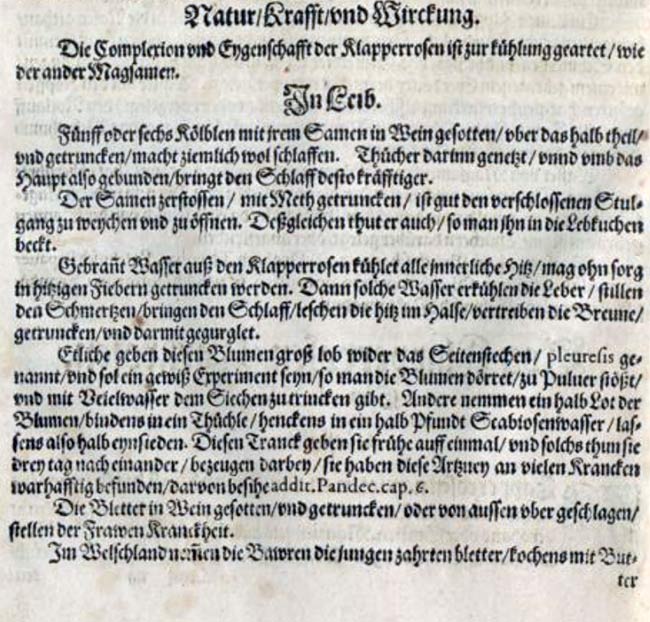 Natur/Krafft/vnd Wirckung.
Die Complexion vnd Eygenschafft der Klapperrosen ist zur kühlung geartet/wie
der ander Magsamen.
In Leib.
Fünff oder sechs Kölblen mit jrem Samen in Wein gesotten/vber das halb theil/
vnd getruncken/macht ziemlich wol schlaffen. Thücher darinn genetzt/vnnd vmb das
Haupt also gebunden/bringt den Schlaff desto kräfftiger.
Der Samen zerstossen/ mit Meth getruncken/ ist gut den verschlossenen Stul-
gang zu weychen vnd zu öffnen. Deßgleichen thut er auch/so man jhn in die Lebkuchen
beckt.
Gebrañt Wasser auß den Klapperrosen kühlet alle jnnerliche Hitz/mag ohn sorg
in hitzigen Fiebern getruncken werden. Dann solche Wasser erkühlen die Leber/ stillen
den Schmertzen/bringen den Schlaff/leschen die hitz im Halse/vertreiben die Breune/
getruncken/vnd darmit gegurglet.
Etliche geben diesen Blumen groß lob wider das Seitenstechen/ pleuresis ge-
nannt/vnd sol ein gewiß Experiment seyn/so man die Blumen dörret/zu Puluer stößt/
vnd mit Veielwasser dem Siechen zu trincken gibt. Andere nemmen ein halb Lot der
Blumen/bindens in ein Thüchle/henckens in ein halb Pfundt Scabiosenwasser/las-
sens also halb eynsieden. Diesen Tranck geben sie frühe auff einmal/vnd solchs thun sie
drey tag nach einander/bezeugen darbey/sie haben diese Artzney an vielen Krancken
warhafftig befunden/darvon besihe addit.Pandec.cap.6.
Die Bletter in Wein gesotten/vnd getruncken/oder von aussen vber geschlagen/
stellen der Frawen Kranckheit.
Im Welschland nem̃en die Bawren die jungen zahrten bletter/kochens mit But-
ter